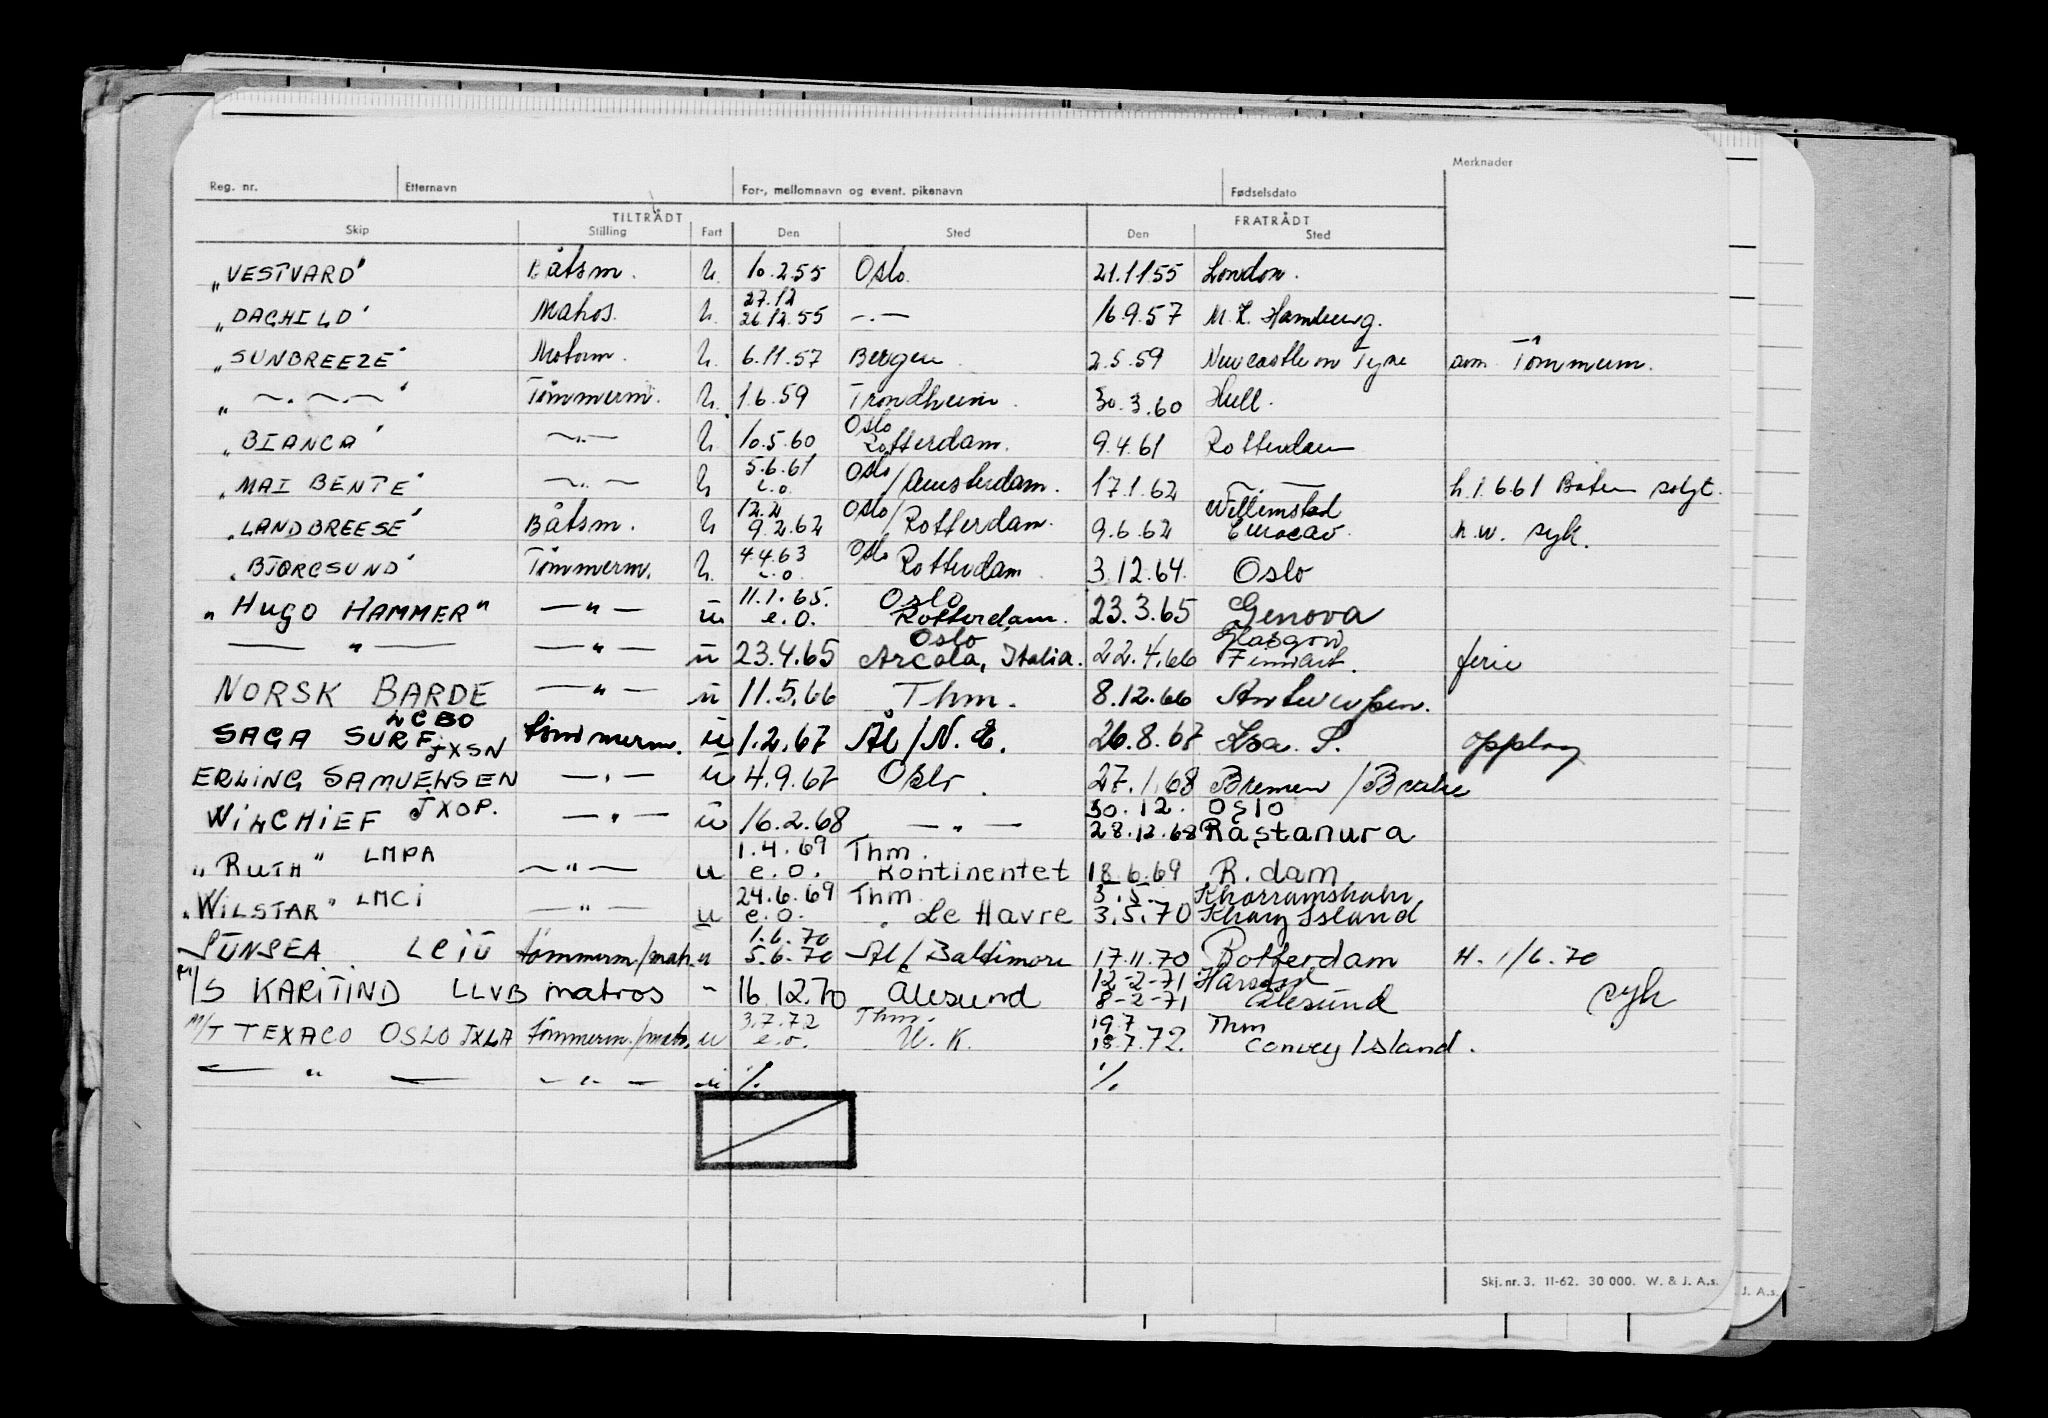 Merknader
Reg. nr. Etternavn For-, mellomnavn og event. pikenavn Fødselsdato
TILTRÅDT FRATRÅDT
Skip Stilling Fart Den Sted Den Sted
„VESTVARD" Båtsm. u. 10.2.55 Oslo. 21.11.55 London.
27.12
„DAGHILD" Matros. u. 26.12.55 —.— 16.9.57 M.K. Hamburg.
„SUNBREEZE" Motorm. u. 6.11.57 Bergen 2.5.59 Newcastle on Tyne som Tömmerm.
„—.—.—" Tömmerm. u. 1.6.59 Trondheim. 30.3.60 Hull.
Oslo
„BIANCA" —.— u. 10.5.60 Rotterdam. 9.4.61 Rotterdam
5.6.61 Oslo
„MAI BENTE" —.— u e.o. /Amsterdam. 17.1.62 —.— h. 1.6.61 Båten solgt.
12.2 Oslo Willemstad
„LANDBREESE" Båtsm. u 9.2.62 /Rotterdam. 9.6.62 Curacao. h.w. syk.
4.4.63 Oslo
„BJORGSUND" Tömmerm. u. e.o. Rotterdam 3.12.64. Oslo
11.1.65. Oslo
„HUGO HAMMER" —"— u e.o. Rotterdam. 23.3.65 Genova
Oslo Glasgow
—"— —"— u 23.4.65 Arcola, Italia. 22.4.66 Finnart. ferie
NORSK BARDE —"— u 11.5.66 Thm. 8.12.66 Antwerpen.
LCBO
SAGA SURF JXSN tömmerm. u 1.2.67 Ål/N.E. 26.8.67 Lsa. S. opplag
ERLING SAMUELSEN —"— u 4.9.67 Oslo. 27.1.68 Bremen/Brake
30.12. Oslo
WILCHIEF JXOP. —"— u 16.2.68 —"— 28.12.68 Rastanura
1.4.69 Thm.
„RUTH" LMPA —"— u e.o. Kontinentet 18.6.69 R.dam
24.6.69 Thm 5.5. Khorramshahr
„WILSTAR" LMCI —"— u e.o. Le Havre 3.5.70 Kharg Island
1.6.70
SUNSEA LCIU tömmerm./matr. u 5.6.70 Ål/Baltimore 17.11.70 Rotterdam H. 1/6.70
12-2-71 Harstad
M/S KARITIND LLVB matros " 16.12.70 Ålesund 8-2-71 Ålesund syk
3.7.72 Thm. 19.7 Thm
M/T TEXACO OSLO JXLA tömmerm./matr. u e.o. U.K. 18.7.72. Convey Island.
—"— —"— u %. %.
Skj. nr. 3. 11-62. 30 000. W. & J. A.s.
J. A.s.